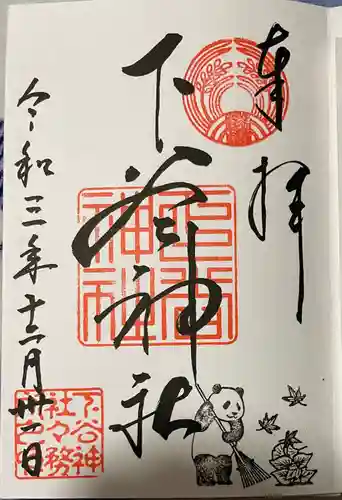 奉拝
下谷神社
令和三年十二月日
下谷神社
下谷神
社々務